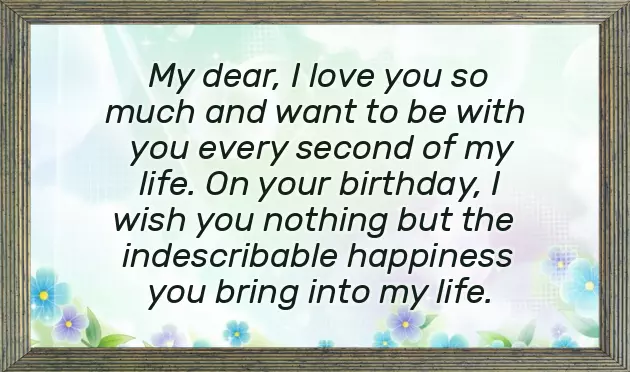 My dear, I love you so
much and want to be with
you every second of my
life. On your birthday, I
wish you nothing but the
indescribable happiness
you bring into my life.